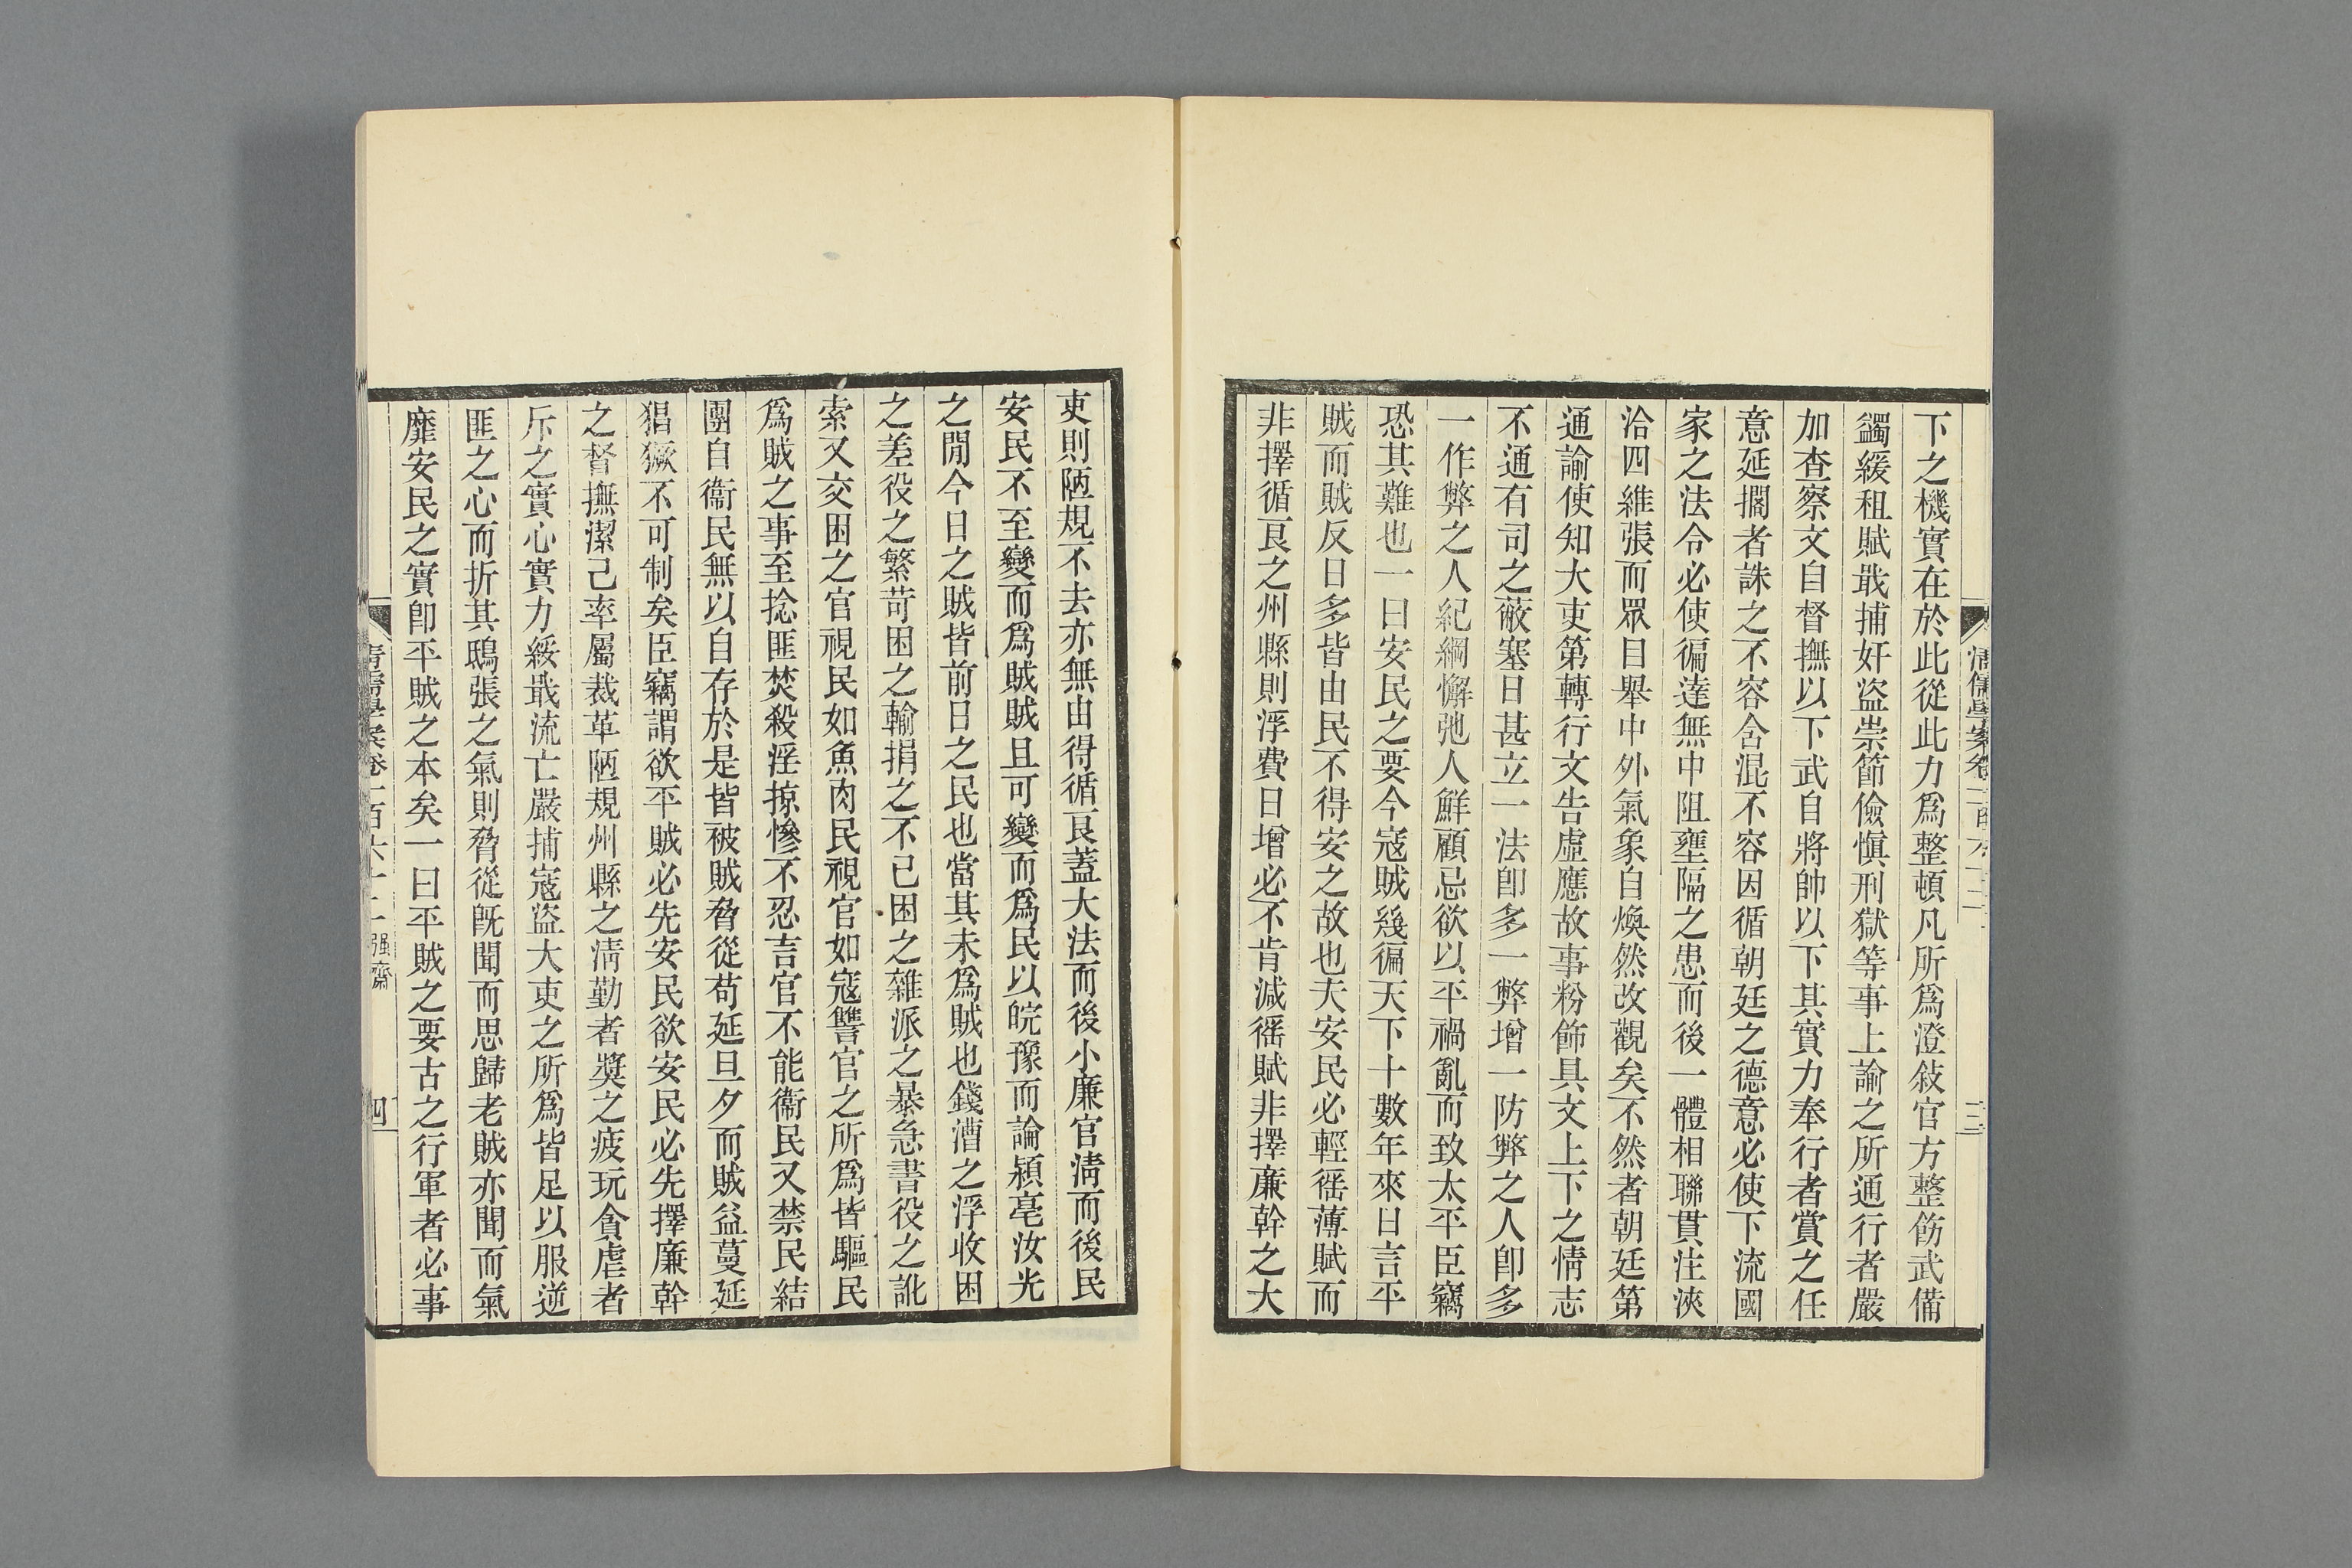 下之機實在於此從此力爲整頓凡所爲澄敍官方整飭武備
蠲緩租賦戢捕奸盜崇節儉愼刑獄等事上諭之所通行者嚴
加查察文自督撫以下武自將帥以下其實力奉行者賞之任
意延擱者誅之不容含混不容因循朝廷之德意必使下流國
家之法令必使徧達無中阻壅隔之患而後一體相聯貫注浹
洽四維張而眾目舉中外氣象自煥然改觀矣不然者朝廷第
通諭使知大吏第轉行文告虛應故事粉飾具文上下之情志
不通有司之蔽塞日甚立一法卽多一弊增一防弊之人卽多
一作弊之人紀綱懈弛人鮮顧忌欲以平禍亂而致太平臣竊
恐其難也一曰安民之要今寇賊幾徧天下十數年來日言平
賊而賊反日多皆由民不得安之故也夫安民必輕徭薄賦而
非擇循良之州縣則浮費日增必不肯減徭賦非擇廉幹之大
吏則陋規不去亦無由得循良蓋大法而後小廉官淸而後民
安民不至變而爲賊賊且可變而爲民以皖豫而論潁亳汝光
之閒今日之賊皆前日之民也當其未爲賊也錢漕之浮收困
之差役之繁苛困之輸捐之不已困之雜派之暴急書役之訛
索又交困之官視民如魚肉民視官如寇讐官之所爲皆驅民
爲賊之事至捻匪焚殺淫掠慘不忍言官不能衞民又禁民結
團自衞民無以自存於是皆被賊脅從苟延旦夕而賊益蔓延
猖獗不可制矣臣竊謂欲平賊必先安民欲安民必先擇廉幹
之督撫潔己率屬裁革陋規州縣之淸勤者獎之疲玩貪虐者
斥之實心實力綏戢流亡嚴捕寇盜大吏之所爲皆足以服逆
匪之心而折其鴟張之氣則脅從旣聞而思歸老賊亦聞而氣
靡安民之實卽平賊之本矣一曰平賊之要古之行軍者必事
清儒學案卷一百六十二 强齋
四
清儒學案卷一百六十二
三